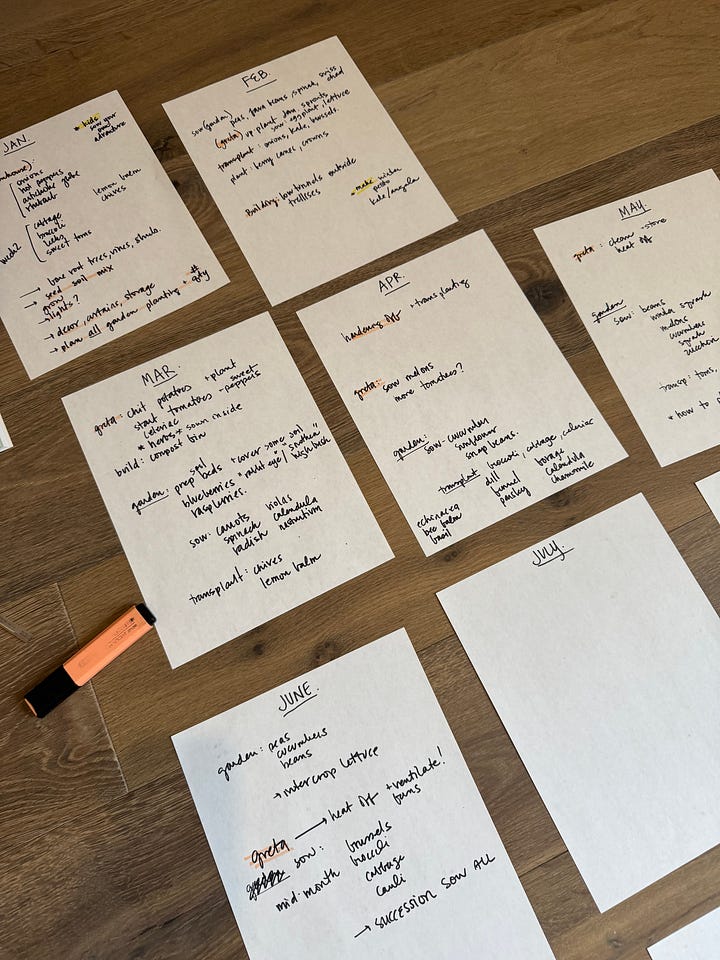 JAN.
* kids
sow your
own
adventure
onions
hot peppers
artichoke globe
rhubarb
lemon balm
chives
cabbage
broccoli
leeks
sweet toms
→ bare root trees, vines, shrubs.
→ seed soil mix
→ grow
lights?
→ decor, curtains, storage
→ plan all garden planting + # qty
FEB.
sow (garden) peas, fava beans, spinach, swiss
chard
(greta) up plant
sow: eggplant, lettuce
transplant: onions, kale, brussels.
plant: berry canes, crowns
Building: low tunnels outside
trellises
* make
pesto
kale/arugula
MAR.
greta: chit potatoes + plant
start tomatoes - sweet
peppers
celeriac
* herbs * sown inside
build: compost bin
garden: soil
prep beds + cover some soil
blueberries
raspberries.
sow: carrots violas
spinach calendula
radish nasturtium
transplant: chives
lemon balm
APR.
hardening off + transplanting
greta: sow melons
more tomatoes?
garden:
sow - cucumber
sunflower
snap beans.
transplant broccoli, cabbage, celeriac
dill borage
fennel calendula
parsley chamomile
echinacea
bee balm
basil
MAY.
greta: clean - store
heat off
garden
sow: beans
winter squash
melons
cucumbers
squash
zucchini
transp: toms,
* how to
JUNE.
garden: peas
cucumbers
beans
→ intercrop lettuce
greta → heat off + ventilate!
fans
sow: brussels
mid-month broccoli
cabbage
cauli
→ succession sow ALL
JULY.